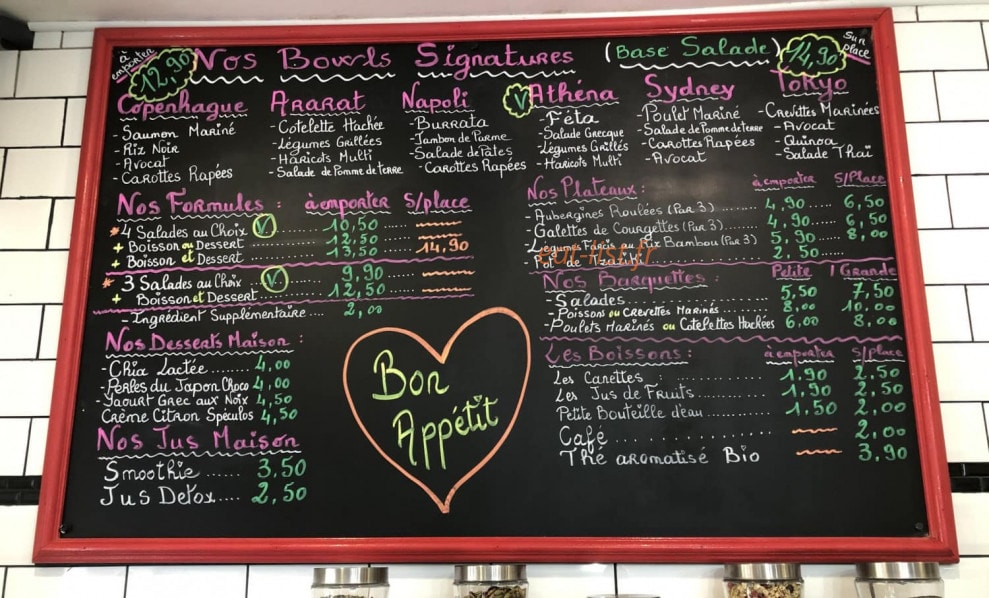 à emporter 12,90 Nos Bowls Signatures (Base Salade) 14,90 Sur place
Copenhague
- Saumon Mariné
- Riz Noir
- Avocat
- Carottes Rapées
Ararat
- Cotelette Hachée
- Légumes Grillées
- Haricots Multi
- Salade de Pomme de Terre
Napoli
- Burrata
- Jambon de Parme
- Salade de Pâtes
- Carottes Rapées
V Athéna
- Féta
- Salade Grecque
- Légumes Grillés
- Haricots Multi
Sydney
- Poulet Mariné
- Salade de Pomme de Terre
- Carottes Rapées
- Avocat
Tokyo
- Crevettes Marinées
- Avocat
- Quinoa
- Salade Thaï
Nos Formules : à emporter s/place
* 4 Salades au Choix V ........ 10,50
+ Boisson ou Dessert ........ 12,50
+ Boisson et Dessert ........ 13,50 ..... 14,90
* 3 Salades au Choix V ....... 9,90
+ Boisson et Dessert ........ 12,50
- Ingrédient Supplémentaire .... 2,00
Nos Desserts Maison :
- Cria Lactée ..... 4,00
- Perles du Japon Choco 4,00
- Yaourt Grec aux Noix 4,50
Crème Citron Spéculos 4,50
Nos Jus Maison
Smoothie ...... 3,50
Jus Detox .... 2,50
Bon
Appétit
Nos Plateaux : à emporter S/Place
- Aubergines Roulées (Par 3) ........ 4,90 .... 6,50
- Galettes de Courgettes (Par 3) ....... 4,90 .... 6,50
- Légumes Farcis au Riz Bambou (Par 3) 5,90 .... 8,00
- Pot de Tzatziki ........ 2,50 ....
eat-list.fr
Nos Barquettes : Petite / Grande
- Salades ........ 5,50 7,50
- Poissons ou Crevettes Marinés ....... 8,00 ..... 10,00
- Poulets Marinés ou Cotelettes Hachées 6,00 ..... 8,00
Les Boissons : à emporter S/Place
Les Canettes ............ 1,90 ..... 2,50
Les Jus de Fruits .......... 1,90 ..... 2,50
Petite Bouteille d'eau .......... 1,50 ..... 2,00
Café ............ 2,00
Thé aromatisé Bio 3,90